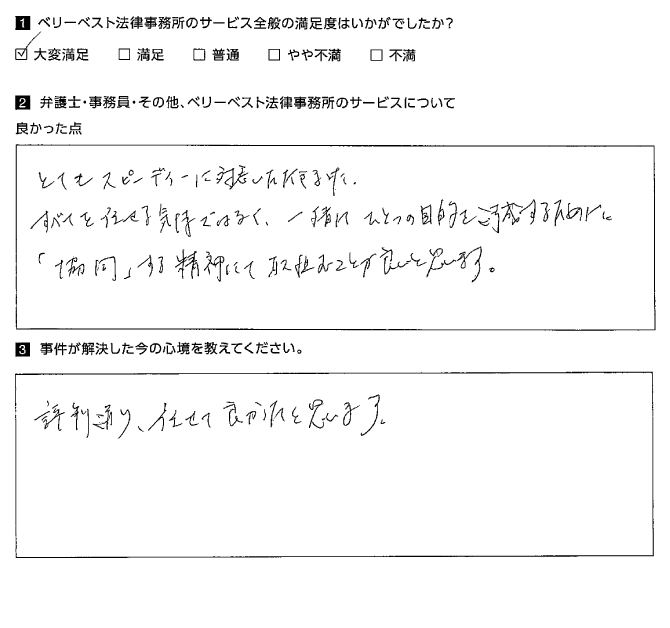 1 ベリーベスト法律事務所のサービス全般の満足度はいかがでしたか？
☑ 大変満足 □ 満足 □ 普通 □ やや不満 □ 不満
2 弁護士・事務員・その他、ベリーベスト法律事務所のサービスについて
良かった点
とてもスピーディーに対応いただきました。
すべてを任せる気持ではなく、一緒に ひとつの目的を達成するために
「協同」する精神にて 取組むことが良いと思います。
3 事件が解決した今の心境を教えてください。
評判通り、任せて良かったと思います。